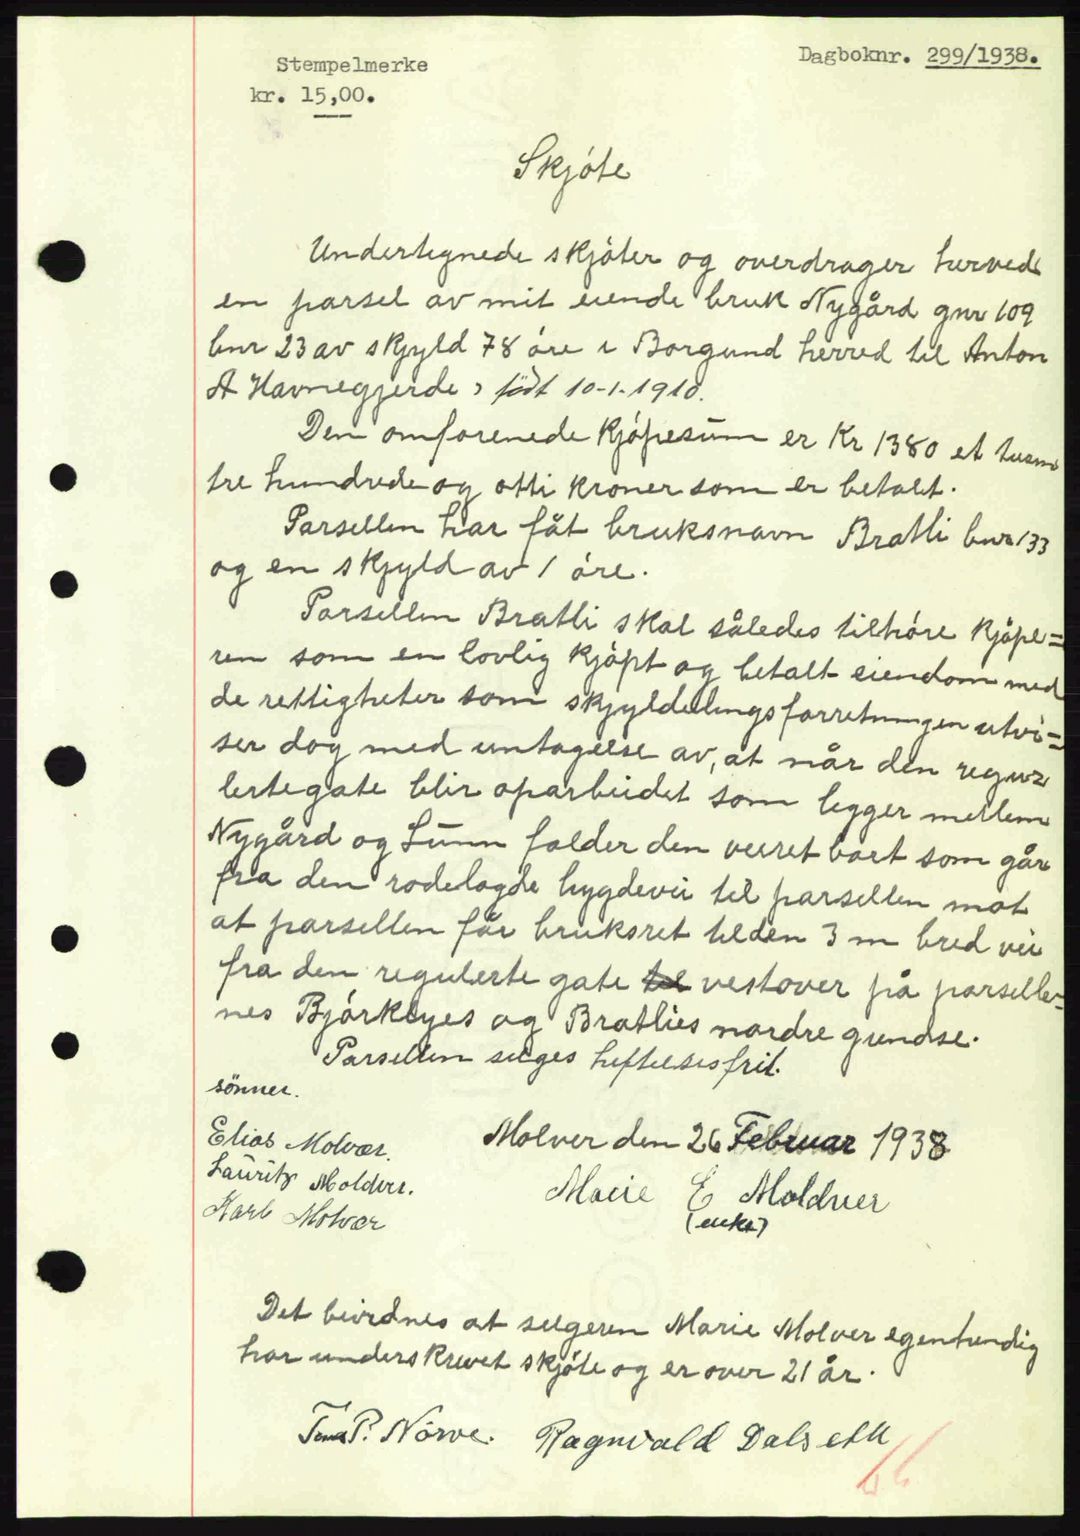 Stempelmerke
kr. 15,00.
Dagboknr. 299/1938.
Skjöte
Undertegnede skjöter og overdrager herved
en parsel av mit eiende bruk Nygård gnr 109
bnr 23 av skjyld 78 öre i Borgund herred til Anton
A Havnegjerde, födt 10-1-1910.
Den omforenede kjöpesum er Kr 1380 et tusen
tre hundrede og otti kroner som er betalt.
Parsellen har fåt bruksnavn Bratli bnr 133
og en skjyld av 1 öre.
Parsellen Bratli skal således tilhöre kjöpe=
ren som en lovlig kjöpt og betalt eiendom med
de rettigheter som skjylddelingsforretningen utvi=
ser dog med untagelse av, at når den regu=
lertegate blir oparbeidet som legger mellem
Nygård og Lunn falder den veiret bort som går
fra den rodelagde bygdevei til parsellen mot
at parsellen får bruksret til den 3 m bred vei
fra den regulerte gate til vestover på parselle=
nes Björklyes og Bratlies nordre grendse.
Parsellen selges heftelsesfrit.
sönner.
Elias Molvær.
Lauritz Moldver.
Karl Molvær
Molver den 26 Februar 1938
Marie E Moldver
(enke)
Det bevidnes at selgeren Marie Molver egenhendig
har underskrevet skjöte og er over 21 år.
P. Nörve. Ragnvald Dalseth